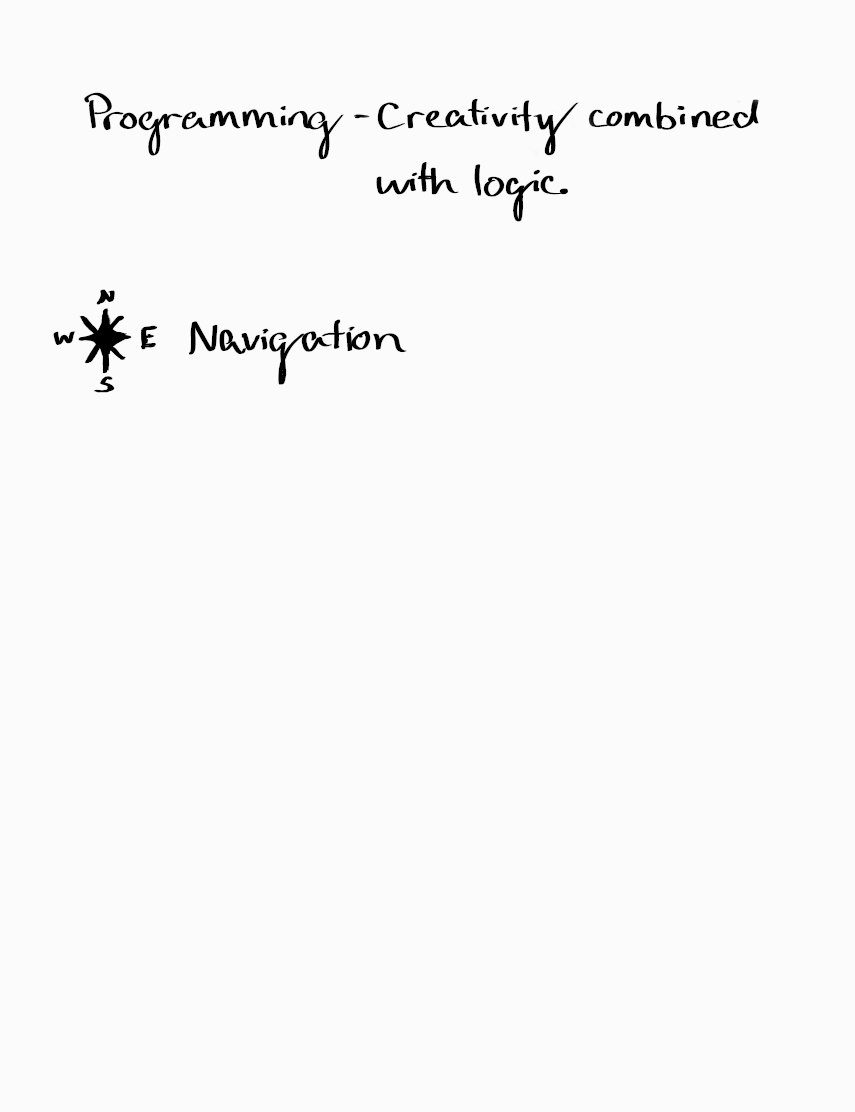 Programming - Creativity combined
with logic.
N
W E Navigation
S